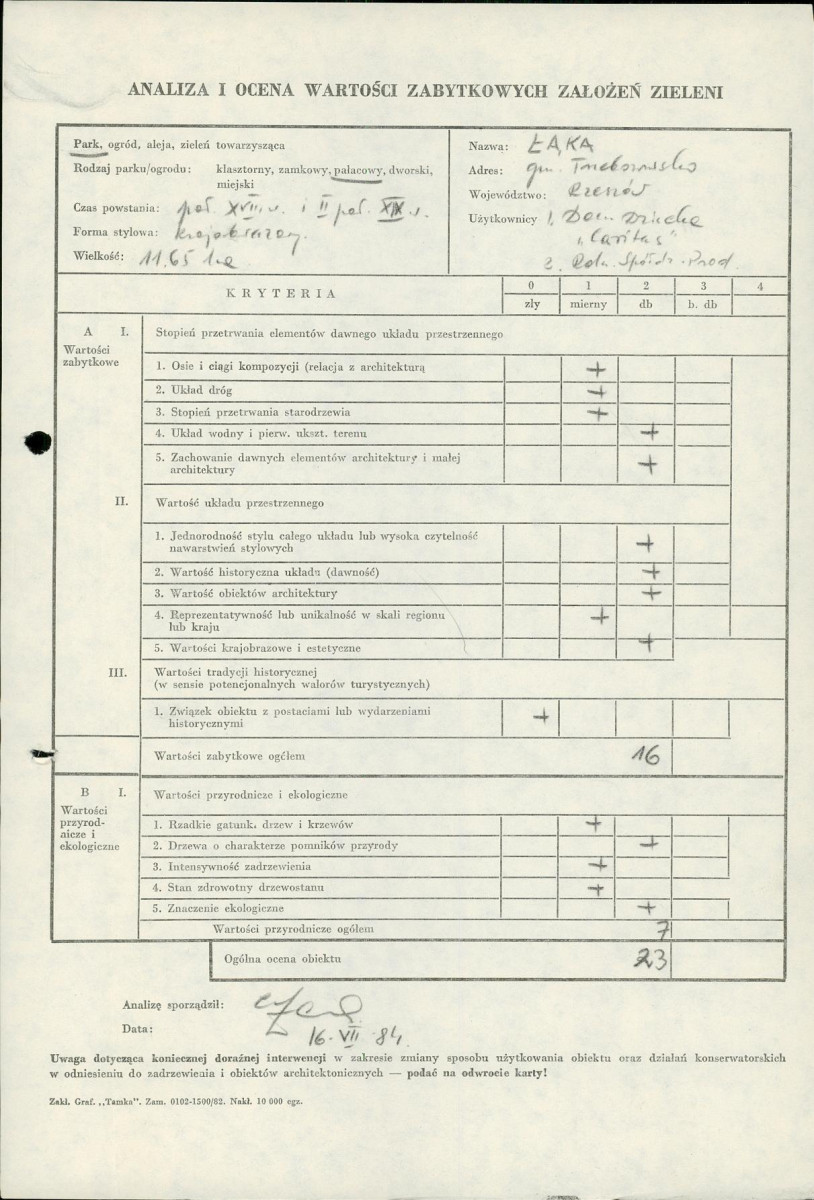 ANALIZA I OCENA WARTOŚCI ZABYTKOWYCH ZAŁOŻEŃ ZIELENI
Park, ogród, aleja, zieleń towarzysząca
Rodzaj parku/ogrodu: klasztorny, zamkowy, pałacowy, dworski,
miejski
Czas powstania: poł. XVIII w. i II poł. XIX w.
Forma stylowa: krajobrazowy.
Wielkość: 11.65 ha
Nazwa: ŁĄKA
Adres: gm. Trzebownisko
Województwo: Rzeszów
Użytkownicy 1. Dom Dziecka
"Caritas"
2. Roln. Spółdz. Prod.
KRYTERIA
0 1 2 3 4
zły mierny db b. db
A I. Stopień przetrwania elementów dawnego układu przestrzennego
Wartości
zabytkowe
1. Osie i ciągi kompozycji (relacja z architekturą +
2. Układ dróg +
3. Stopień przetrwania starodrzewia +
4. Układ wodny i pierw. ukszt. terenu +
5. Zachowanie dawnych elementów architektury i małej
architektury +
II. Wartość układu przestrzennego
1. Jednorodność stylu całego układu lub wysoka czytelność
nawarstwień stylowych +
2. Wartość historyczna układu (dawność) +
3. Wartość obiektów architektury +
4. Reprezentatywność lub unikalność w skali regionu
lub kraju +
5. Wartości krajobrazowe i estetyczne +
III. Wartości tradycji historycznej
(w sensie potencjonalnych walorów turystycznych)
1. Związek obiektu z postaciami lub wydarzeniami
historycznymi +
Wartości zabytkowe ogółem 16
B I. Wartości przyrodnicze i ekologiczne
Wartości
przyrod-
nicze i
ekologiczne
1. Rzadkie gatunk. drzew i krzewów +
2. Drzewa o charakterze pomników przyrody +
3. Intensywność zadrzewienia +
4. Stan zdrowotny drzewostanu +
5. Znaczenie ekologiczne +
Wartości przyrodnicze ogółem 7
Ogólna ocena obiektu 23
Analizę sporządził:
Data: 16. VII 84.
Uwaga dotycząca koniecznej doraźnej interwencji w zakresie zmiany sposobu użytkowania obiektu oraz działań konserwatorskich
w odniesieniu do zadrzewienia i obiektów architektonicznych — podać na odwrocie karty!
Zakł. Graf. „Tamka". Zam. 0102-1500/82. Nakł. 10 000 egz.